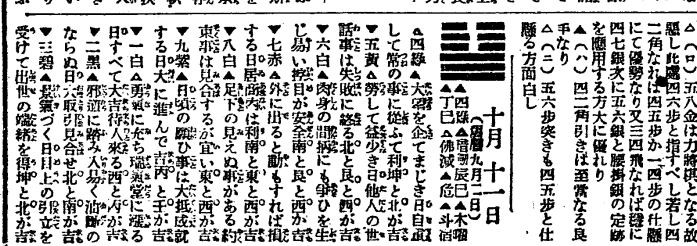 △(ロ)五八金は力將棋となる故
惡し此處四六步と指すべし若し四
二角なれば四五步か一四步の仕懸
にて優勢なり又三四飛なれば隨に
四七銀次に五六銀と腰掛銀の定跡
を應用する方大に優れり
▲(ハ)四二角引きは至當なる良
手なり
△(ニ)五六步突きも四五步と仕
懸る方面白し
十月十一日
(舊曆九月二日)
△四綠△先勝△戊辰△木曜
▲丁巳△佛滅△危△斗宿
△四綠△大望を企てまじき日自重
して常の事に從ふて利坤と北が吉
▼五黃△勞して益少き日他人の世
話事は失敗に終る北と艮と西が吉
▼六白△肉身の間柄にも爭ひを生
じ易い日控目が安全南と艮と西が吉
▼七赤△外に出ると動もすれば損
する日居商內は利南と東と西が吉
▼八白△足下の見えぬ事がある約
束事は見合するが宜い東と西が吉
▼九紫▲日頃の願ひ事は大抵成就
する日大に進んで吉丙と壬が吉
▼一白▲勇氣に充ち福氣堂に滿る
日すべて大吉待人來る西と丙が吉
▼二黑▲邪道に踏み入易く油斷の
ならぬ日大取引見合せ北と南が吉
▼三碧▲景氣づく日目上の引立を
受けて出世の端緒を得坤と北が吉